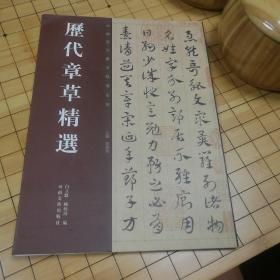 急就奇觚與衆異羅列諸物
名姓字分別部居不雜廁用
日約少誠快意勉力務之必有
憙請道其章宋延年鄭子方
歷代章草精選
河南美術出版社